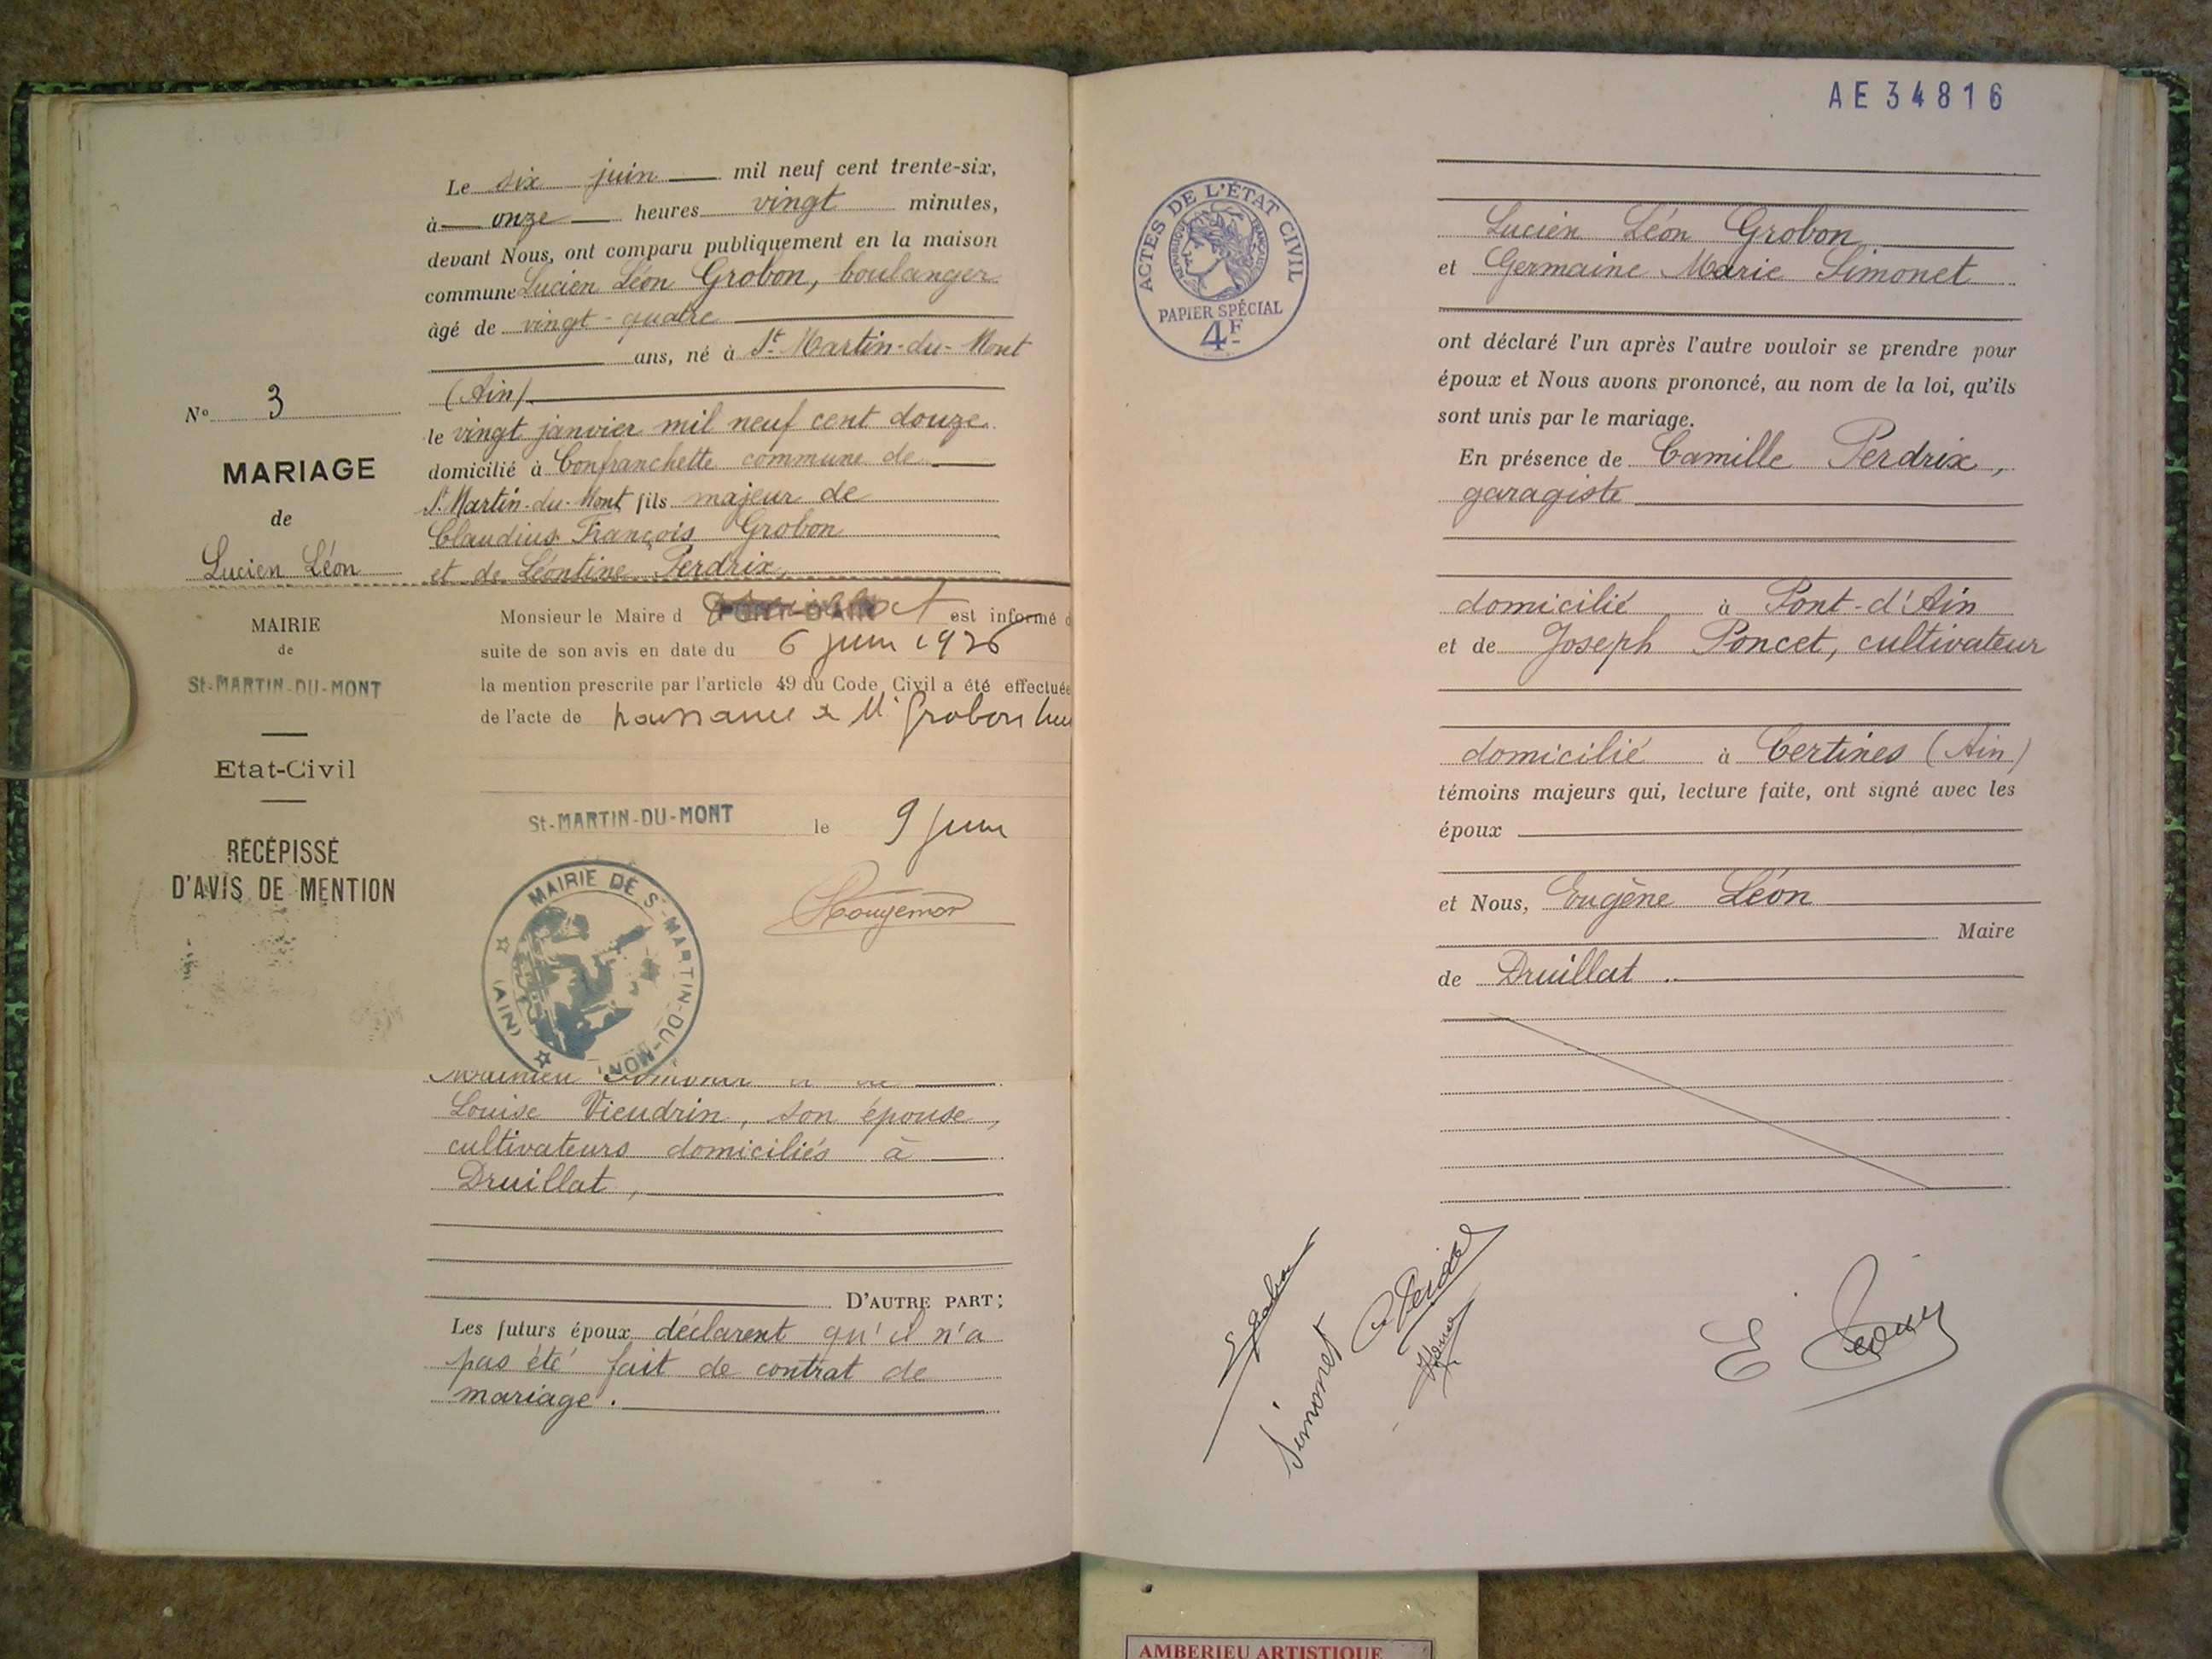 Le six juin mil neuf cent trente-six,
à onze heures vingt minutes,
devant Nous, ont comparu publiquement en la maison
commune Lucien Léon Grobon, boulanger
âgé de vingt-quatre
ans, né à St Martin-du-Mont
(Ain)
le vingt janvier mil neuf cent douze
domicilié à Confranchette commune de
St Martin-du-Mont fils majeur de
Claudius François Grobon
et de Léontine Perdrix,
N° 3
MARIAGE
de
Lucien Léon
MAIRIE
de
St-MARTIN-DU-MONT
Etat-Civil
RÉCÉPISSÉ
D'AVIS DE MENTION
Monsieur le Maire d PONT-D'AIN est informé
suite de son avis en date du 6 juin 1936
la mention prescrite par l'article 49 du Code Civil a été effectuée
de l'acte de naissance de Mr Grobon
St-MARTIN-DU-MONT le 9 juin
MAIRIE DE St-MARTIN-DU-MONT
(AIN)
Louise Vieudrin, son épouse,
cultivateurs domiciliés à
Druillat,
D'AUTRE PART;
Les futurs époux déclarent qu'il n'a
pas été fait de contrat de
mariage.
AE34816
ACTES DE L'ÉTAT CIVIL
RÉPUBLIQUE FRANÇAISE
PAPIER SPÉCIAL
4F
Lucien Léon Grobon
et Germaine Marie Simonet
ont déclaré l'un après l'autre vouloir se prendre pour
époux et Nous avons prononcé, au nom de la loi, qu'ils
sont unis par le mariage.
En présence de Camille Perdrix,
garagiste
domicilié à Pont-d'Ain
et de Joseph Poncet, cultivateur
domicilié à Certines (Ain)
témoins majeurs qui, lecture faite, ont signé avec les
époux
et Nous, Eugène Léon
Maire
de Druillat.
Simonet
E Léon
AMBERIEU ARTISTIQUE